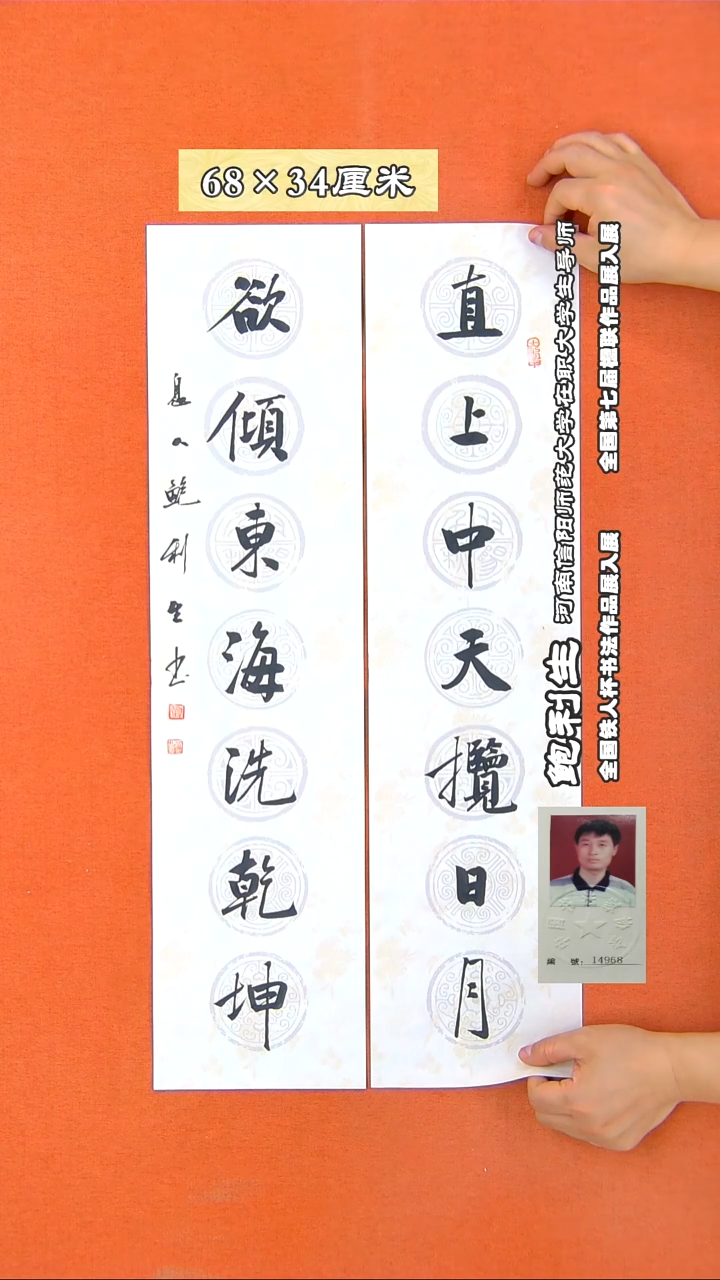 68×34厘米
直上中天攬日月
欲傾東海洗乾坤
息人鮑利生书
鲍利生 河南信阳师范大学在职大学生导师
全国铁人杯书法作品展入展 全国第七届楹联作品展入展
編 號：14968